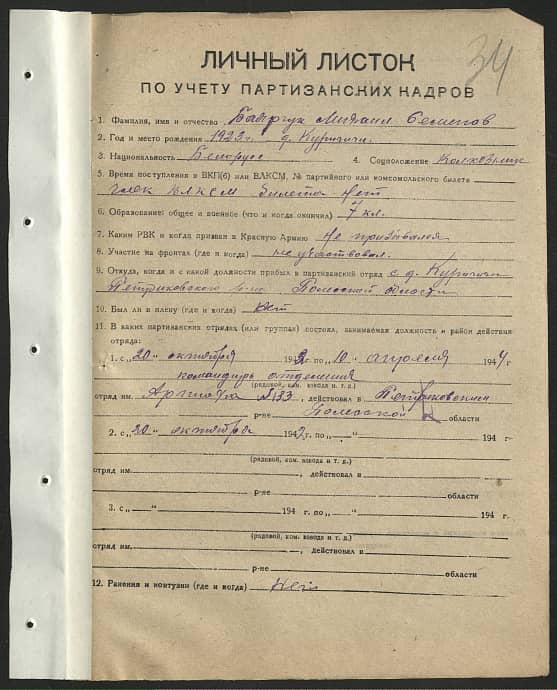 34
ЛИЧНЫЙ ЛИСТОК
ПО УЧЕТУ ПАРТИЗАНСКИХ КАДРОВ
1. Фамилия, имя и отчество Михаил Семенов
2. Год и место рождения 1923 г. д. Куритичи
3. Национальность Белорус 4. Соцположение Колхозник
5. Время поступления в ВКП(б) или ВЛКСМ, № партийного или комсомольского билета
член ВЛКСМ билета нет
6. Образование: общее и военное (что и когда окончил) 7 кл.
7. Каким РВК и когда призван в Красную Армию не призывался
8. Участие на фронтах (где и когда) не участвовал
9. Откуда, когда и с какой должности прибыл в партизанский отряд с д. Куритичи
Петриковского р-на Полесской области
10. Был ли в плену (где и когда) нет
11. В каких партизанских отрядах (или группах) состоял, занимаемая должность и район действия
отряда:
1. с „20" октября 1942 г. по „10" апреля 1944 г.
командир отделения
(рядовой, ком. взвода и т. д.)
отряд им. №133, действовал в Петриковском
р-не Полесской области
2. с „20" октября 1942 г. по „ " 194 г.
(рядовой, ком. взвода и т. д.)
отряд им. , действовал в
р-не области
3. с „ " 194 г. по „ " 194 г.
(рядовой, ком. взвода и т. д.)
отряд им. , действовал в
р-не области
12. Ранения и контузии (где и когда) нет